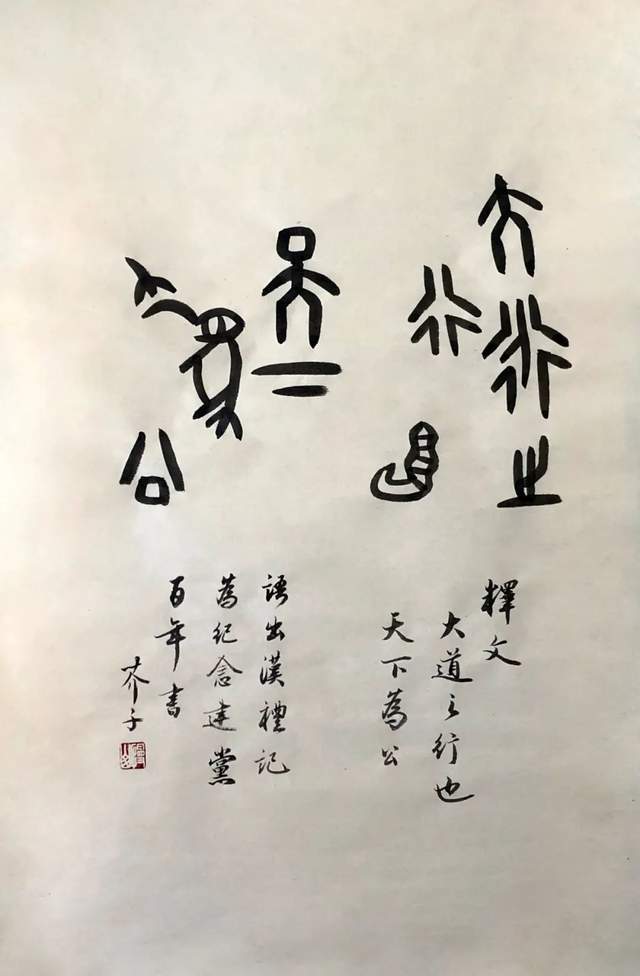 大道之
行也
天下
為公
釋文
大道之行也
天下為公
語出漢禮記
為紀念建黨
百年書
芥子